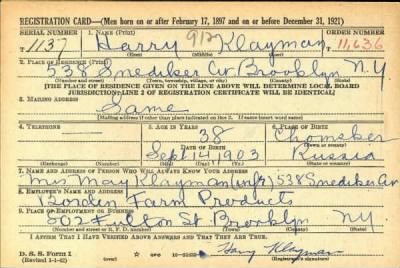 REGISTRATION CARD—(Men born on or after February 17, 1897 and on or before December 31, 1921)
SERIAL NUMBER 1. NAME (Print) ORDER NUMBER
T 1137 Harry Klayman 11,636
(First) (Middle) (Last)
2. PLACE OF RESIDENCE (Print)
538 Snediker Av Brooklyn N.Y.
(Number and street) (Town, township, village, or city) (County) (State)
[THE PLACE OF RESIDENCE GIVEN ON THE LINE ABOVE WILL DETERMINE LOCAL BOARD
JURISDICTION; LINE 2 OF REGISTRATION CERTIFICATE WILL BE IDENTICAL]
3. MAILING ADDRESS
Same
[Mailing address if other than place indicated on line 2. If same insert word same]
4. TELEPHONE 5. AGE IN YEARS 6. PLACE OF BIRTH
38 Chomsker
DATE OF BIRTH (Town or county)
Sept 14 1903 Russia
(Exchange) (Number) (Mo.) (Day) (Yr.) (State or country)
7. NAME AND ADDRESS OF PERSON WHO WILL ALWAYS KNOW YOUR ADDRESS
Mrs May Klayman (wife) 538 Snediker Av
8. EMPLOYER'S NAME AND ADDRESS
Borden Farm Products
9. PLACE OF EMPLOYMENT OR BUSINESS
502 Fulton St Brooklyn NY
(Number and street or R. F. D. number) (Town) (County) (State)
I AFFIRM THAT I HAVE VERIFIED ABOVE ANSWERS AND THAT THEY ARE TRUE.
D. S. S. Form 1
(Revised 1-1-42) (over) Harry Klayman